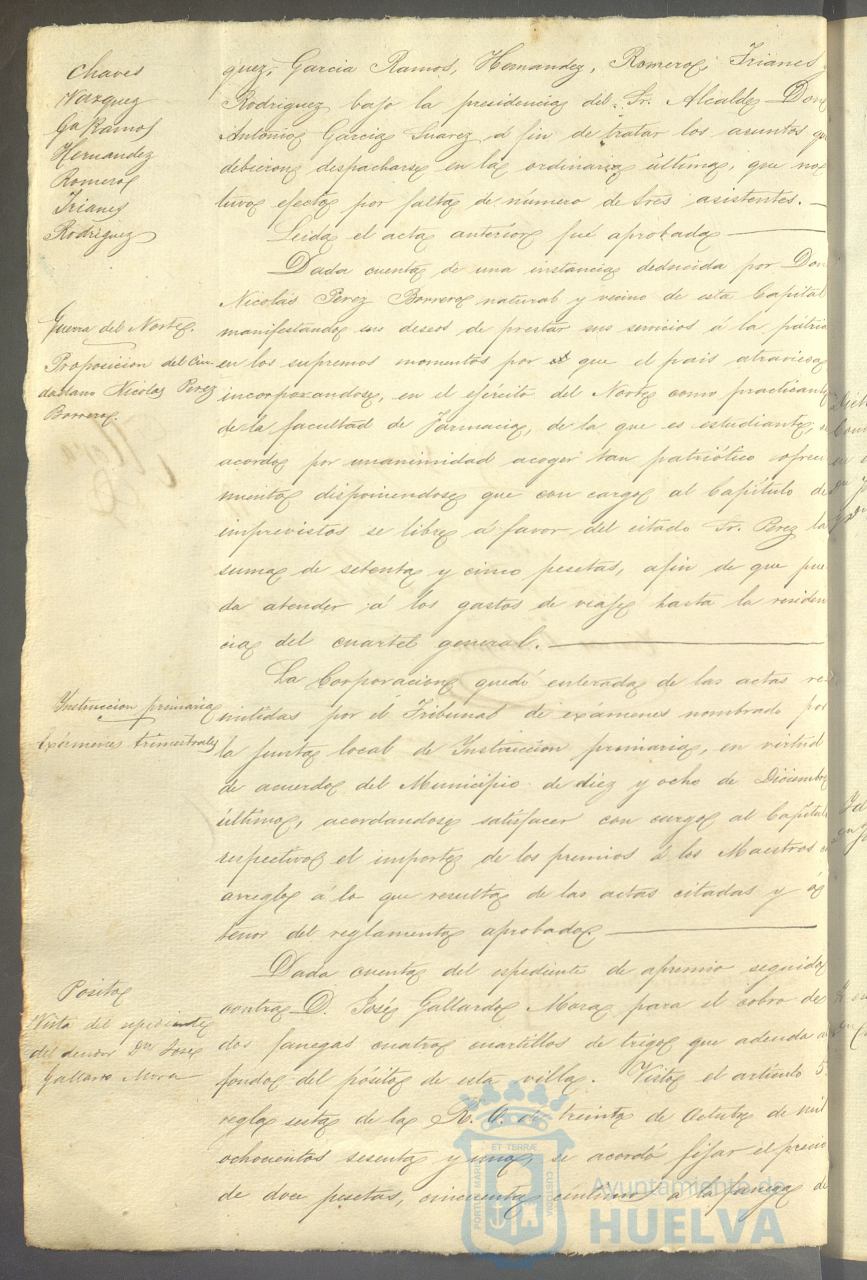 Chaves
Vazquez
Ga Ramos
Hernandez
Romero
Trianes
Rodriguez
quez, Garcia Ramos, Hernandez, Romero, Trianes
Rodriguez bajo la presidencia del Sr. Alcalde Don
Antonio Garcia Suarez, á fin de tratar los asuntos q
debieron despacharse en la ordinaria última, que no
tuvo efecto por falta de número de tres asistentes.
Leida el acta anterior fué aprobada
Guerra del Norte.
Proposicion del Ciu-
dadano Nicolas Perez
Borrero.
Dada cuenta de una instancia deducida por Don
Nicolás Perez Borrero natural y vecino de esta Capital
manifestando sus deseos de prestar sus servicios á la pátria
en los supremos momentos por que el pais atraviesa
incorporandose, en el ejército del Norte como practicante
de la facultad de Farmacia, de la que es estudiante, se
acordó por unanimidad acoger tan patriótico ofreci
miento disponiendose que con cargo al Capítulo de
imprevistos se libre á favor del citado Sr. Perez la
suma de setenta y cinco pesetas, afin de que pue
da atender á los gastos de viaje hasta la residen
cia del cuartel general.
Instruccion primaria
Exámenes trimestrales
La Corporacion quedó enterada de las actas re
mitidas por el Tribunal de exámenes nombrado por
la junta local de Instruccion primaria, en virtud
de acuerdo del Municipio de diez y ocho de Diciembre
último, acordandose satisfacer con cargo al Capítulo
respectivo el importe de los premios á los Maestros
arreglo á lo que resulta de las actas citadas y á
tenor del reglamento aprobado
Posito
Vista del espediente
del deudor Dn Jose
Gallardo Mora
Dada cuenta del espediente de apremio seguido
contra D. José Gallardo Mora para el cobro de
dos fanegas cuatro cuartillos de trigo que adeuda a
fondos del pósito de esta villa. Visto el artículo 5
regla sesta de la R. O. de treinta de Octubre de mil
ochocientos sesenta y uno, se acordó fijar el precio
de doce pesetas, cincuenta céntimos á la fanega de
PORTUS MARIS ET TERRÆ CUSTODIA
Ayuntamiento de
HUELVA